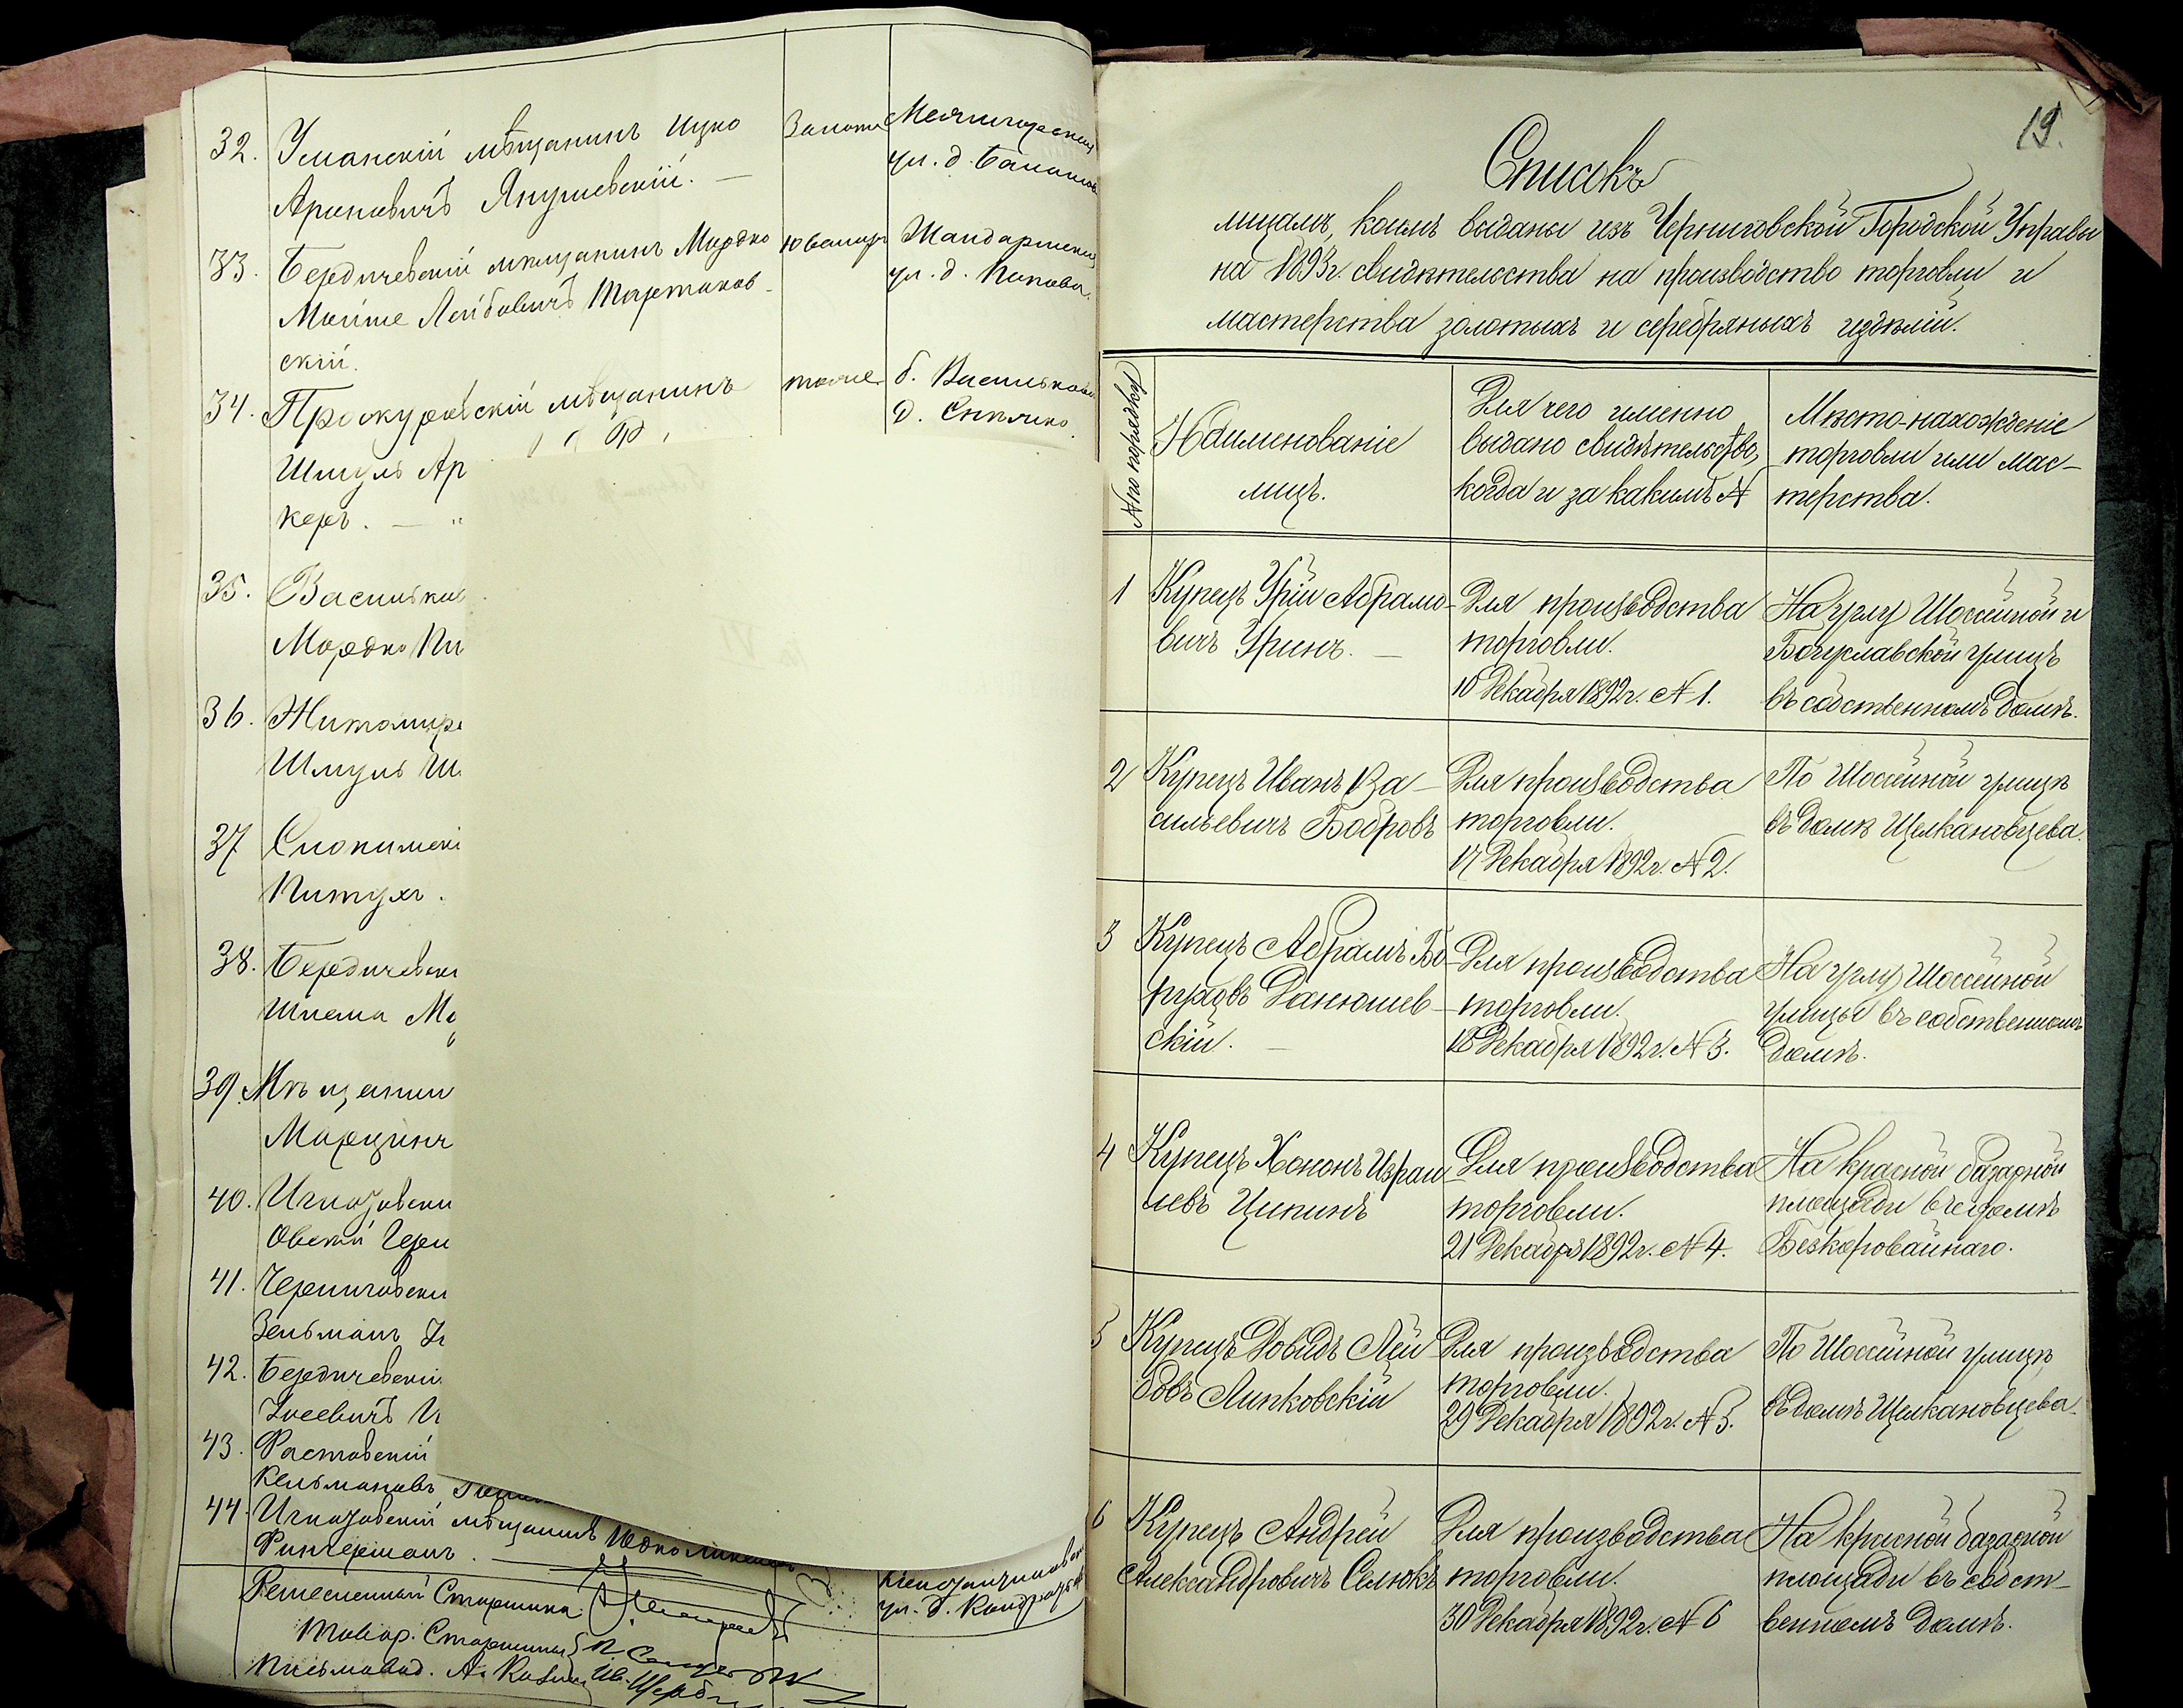 32. Уманскій мѣщанинъ Ицко
Ароновичъ Янушевскій. —
ул. д.
33. Бердичевскій мѣщанинъ Мордко
Мойше Лейбовичъ
скій.
Ювелиръ
Жандармская
ул. д. Попова.
34. Проскуровскій мѣщанинъ
Шмуль Ар
керъ. —
тоже
б. Васильков
д.
35. Васильков
Мордко Пи
36. Житомирс
Шмуль Ш
37
Питухъ.
38. Бердичевски
Шлема Мо
39. Мѣщанин
40.
41. Черниговски
Зельманъ
42. Бердичевскій
43. Ростовскій
Кельмановъ
44. мѣщанинъ
Фингерманъ. —
ул. д.
Ремесленный Старшина
Товар. Старшины
Письмовод. А.
19.
Списокъ
лицамъ, коимъ выданы изъ Черниговской Городской Управы
на 1893 г. свидѣтельства на производство торговли и
мастерства золотыхъ и серебряныхъ издѣлій.
№ по порядку
Наименованіе
лицъ.
Для чего именно
выдано свидѣтельство,
когда и за какимъ №
Мѣсто-нахожденіе
торговли или мас-
терства.
1
Купецъ Урій Абрамо-
вичъ Уринъ. —
Для производства
торговли.
10 Декабря 1892 г. № 1.
На углу Шоссейной и
Богуславской улицъ
въ собственномъ домѣ.
2
Купецъ Иванъ Ва-
сильевичъ Бобровъ
Для производства
торговли.
17 Декабря 1892 г. № 2.
По Шоссейной улицѣ
въ домѣ Щелкановцева.
3
Купецъ Абрамъ Бо-
руховъ Данюшев-
скій. —
Для производства
торговли.
18 Декабря 1892 г. № 3.
На углу Шоссейной
улицы въ собственномъ
домѣ.
4
Купецъ Хононъ Израи
левъ Ципинъ
Для производства
торговли.
21 Декабря 1892 г. № 4.
На красной базарной
площади въ домѣ
Безкоровайнаго.
5
Купецъ Довидъ Лей
бовъ Липковскій
Для производства
торговли.
29 Декабря 1892 г. № 5.
По Шоссейной улицѣ
въ домѣ Щелкановцева.
6
Купецъ Андрей
Александровичъ Селюкъ
Для производства
торговли.
30 Декабря 1892 г. № 6
На красной базарной
площади въ собст-
венномъ домѣ.